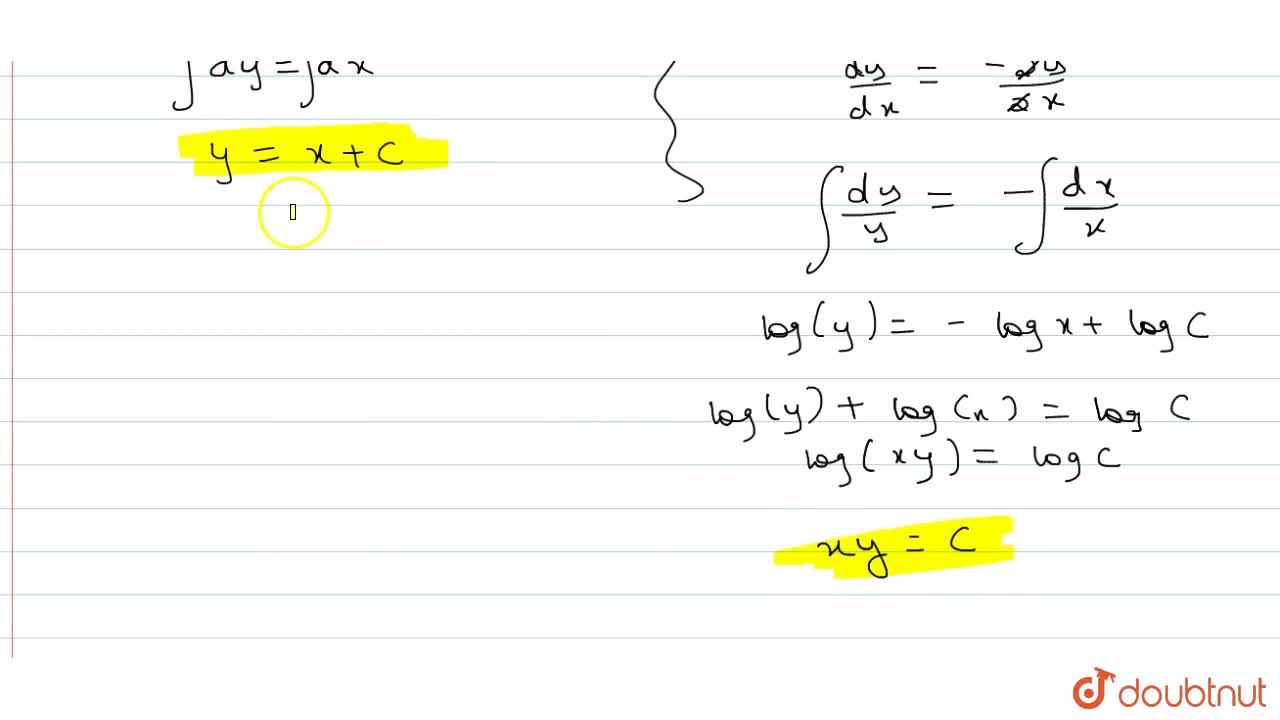 ∫ dy = ∫ dx
y = x + C
dy/dx = -2y/2x
∫ dy/y = -∫ dx/x
log(y) = - log x + log C
log(y) + log(x) = log C
log(xy) = log C
xy = C
doubtnut